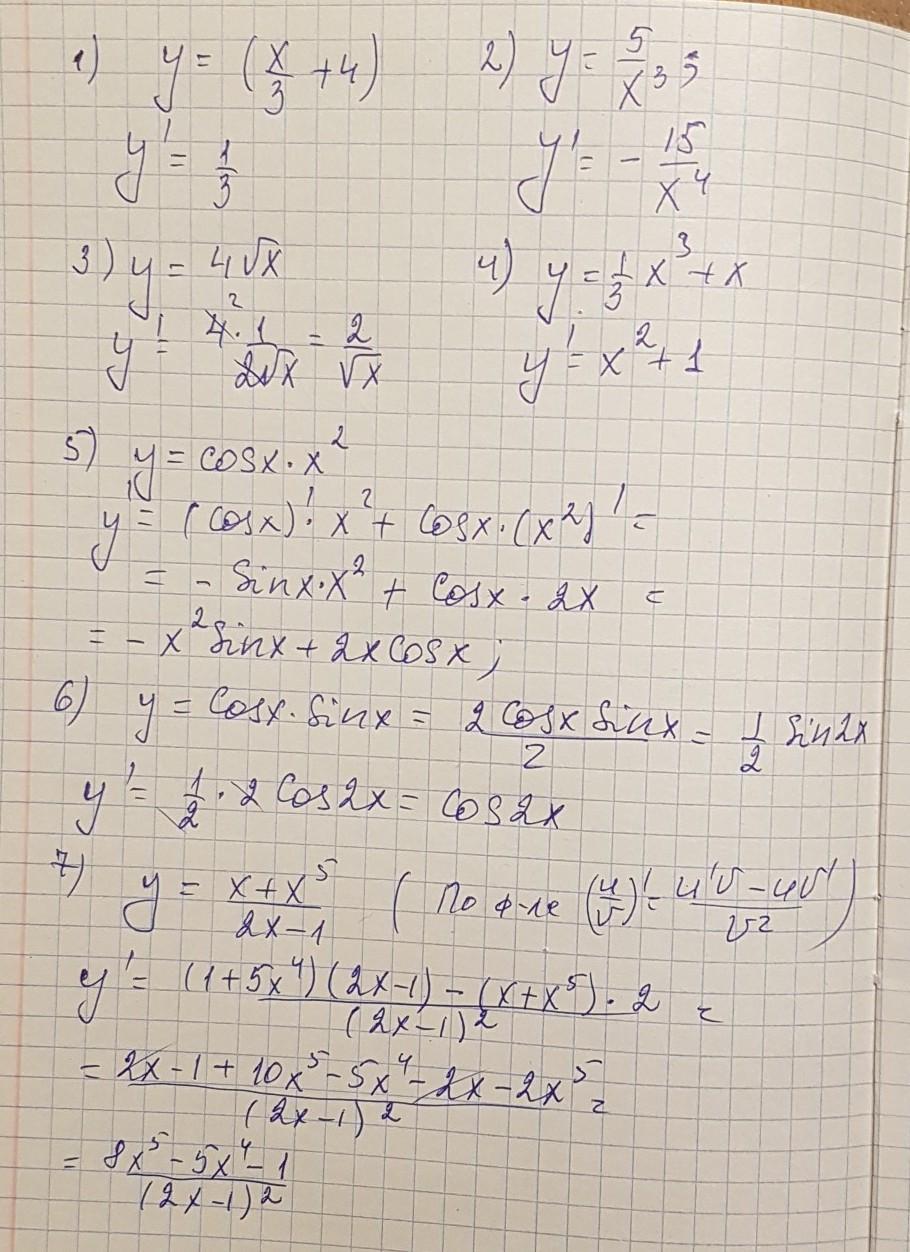 1) y = (x/3 + 4) 2) y = 5/x³;
y' = 1/3 y' = - 15/x⁴
3) y = 4√x 4) y = 1/3 x³ + x
y' = 4·1/2√x = 2/√x y' = x² + 1
5) y = cosx · x²
y' = (cosx)' · x² + cosx · (x²)' =
= - sinx · x² + cosx · 2x =
= - x² sinx + 2x cosx;
6) y = cosx · sinx = 2 cosx sinx/2 = 1/2 sin2x
y' = 1/2 · 2 cos2x = cos2x
7) y = x + x⁵/2x - 1 (По ф-ле (u/v)' = u'v - uv'/v²)
y' = (1 + 5x⁴)(2x - 1) - (x + x⁵) · 2/(2x - 1)² =
= 2x - 1 + 10x⁵ - 5x⁴ - 2x - 2x⁵/(2x - 1)² =
= 8x⁵ - 5x⁴ - 1/(2x - 1)²